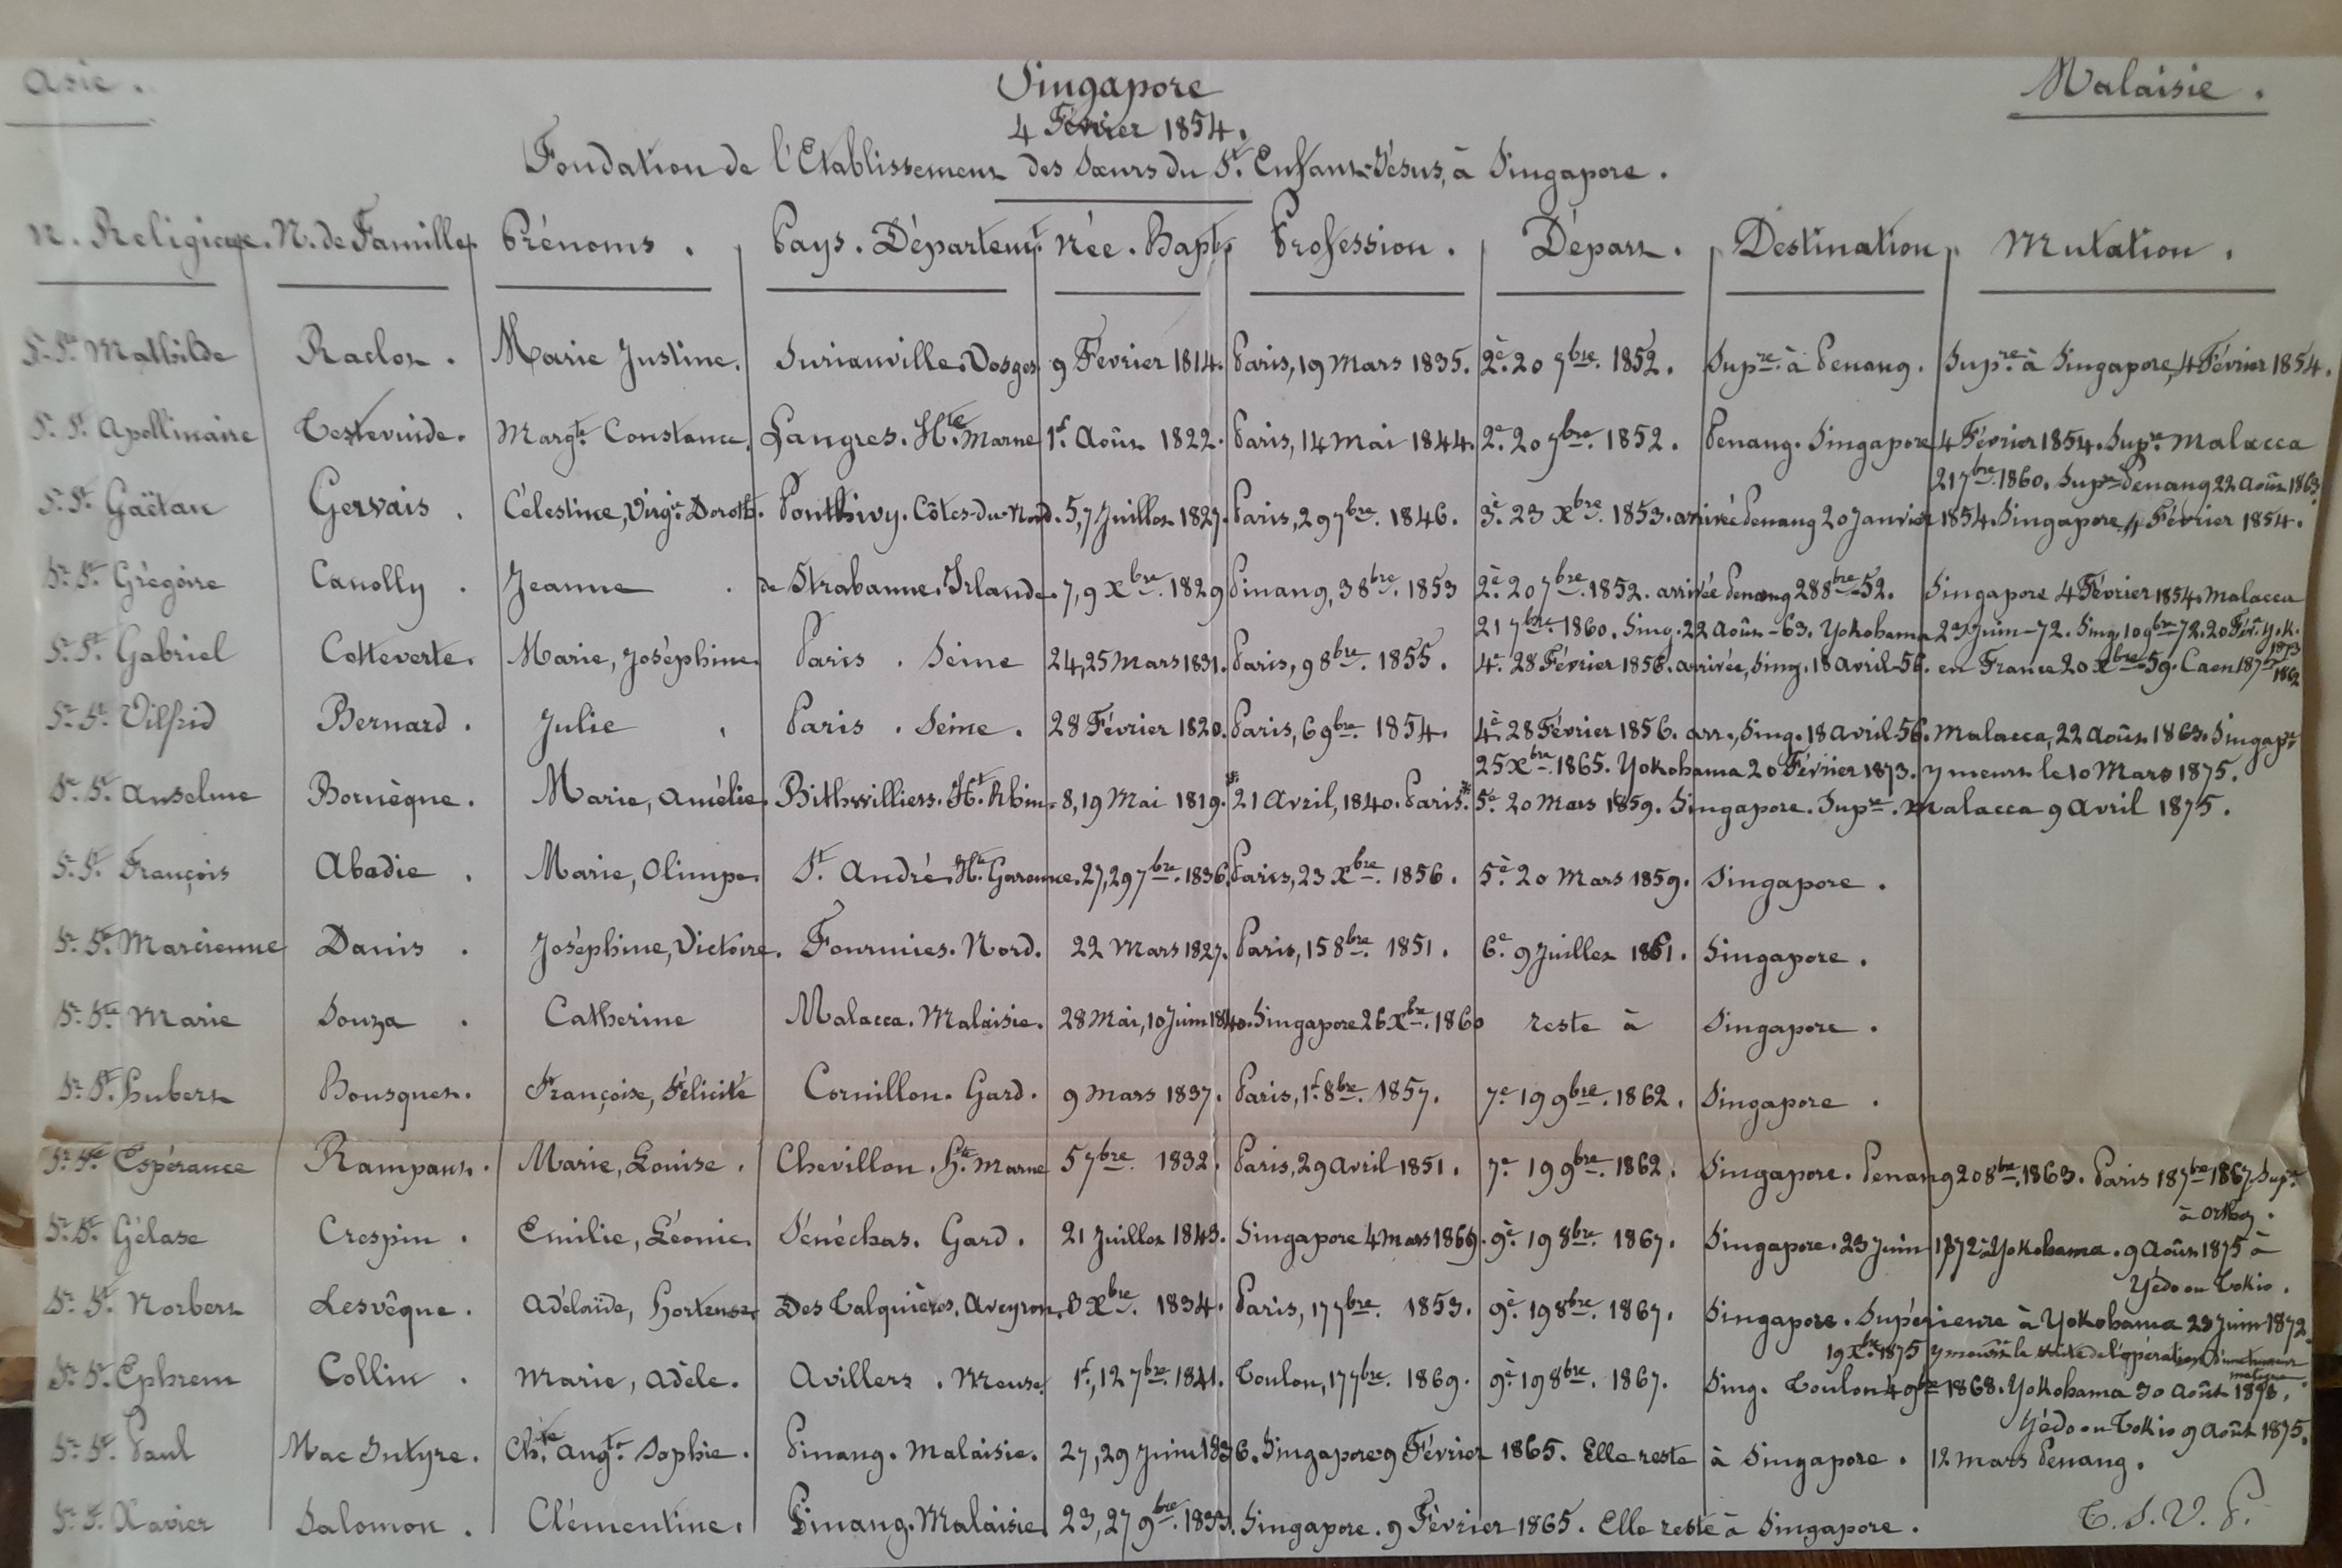 Asie. Singapore Malaisie.
4 Février 1854.
Fondation de l'Etablissement des Sœurs du St. Enfant-Jésus, à Singapore.
N. Religieux. N. de Famille. Prénoms. Pays. Départemt. Née. Bapt. Profession. Départ. Destination. Mutation.
Sr. St. Mathilde Raclot. Marie Justine. Suriauville. Vosges 9 Février 1814. Paris, 19 Mars 1835. 2e. 20 7bre. 1852. Supre. à Penang. Supre. à Singapore, 4 Février 1854.
Sr. St. Apollinaire Testevuide. Margte. Constance. Langres. Hte. Marne 1r. Août 1822. Paris, 14 Mai 1844. 2e. 20 7bre. 1852. Penang. Singapore 4 Février 1854. Supre. Malacca
21 7bre. 1860. Supre Penang 22 Août 1863.
Sr. St. Gaëtan Gervais. Célestine, Virge. Doroth. Ponthivy. Côtes-du-Nord. 5, 7 Juillet 1827. Paris, 29 7bre. 1846. 3e. 23 Xbre. 1853. arrivée Penang 20 Janvier 1854. Singapore, 4 Février 1854.
Sr. St. Grégoire Canolly. Jeanne. de Strabanne. Irlande. 7, 9 Xbre. 1829 Pinang, 3 8bre. 1853 2e. 20 7bre. 1852. arrivée Penang 28 8bre-52. Singapore 4 Février 1854. Malacca
21 7bre. 1860. Sing. 22 Août-63. Yokohama 23 Juin-72. Sing. 10 9bre-72. 20 Fév. Yok. 1873
Sr. St. Gabriel Cotteverte. Marie, Joséphine. Paris. Seine 24, 25 Mars 1831. Paris, 9 8bre. 1855. 4e. 28 Février 1856. arrivée, Sing. 18 Avril-56. en France 20 Xbre-59. Caen 18 7bre 1862
Sr. St. Vilfrid Bernard. Julie. Paris. Seine. 28 Février 1820. Paris, 6 9bre. 1854. 4e. 28 Février 1856. arr., Sing. 18 Avril-56. Malacca, 22 Août 1863. Singapre
25 Xbre. 1865. Yokohama 20 Février 1873. y meurt le 10 Mars 1875.
Sr. St. Anselme Bornèque. Marie, Amélie. Bithwilliers. Ht. Rhin. 8, 19 Mai 1819. 21 Avril, 1840. Paris. 5e. 20 Mars 1859. Singapore. Supre. Malacca 9 Avril 1875.
Sr. St. François Abadie. Marie, Olimpe. St. André. Hte. Garonne. 27, 29 7bre. 1836. Paris, 23 Xbre. 1856. 5e. 20 Mars 1859. Singapore.
Sr. Ste. Marcienne Danis. Joséphine, Victoire. Fourmies. Nord. 22 Mars 1827. Paris, 15 8bre. 1851. 6e. 9 Juillet 1861. Singapore.
Sr. Ste. Marie Souza. Catherine Malacca. Malaisie. 28 Mai, 10 Juin 1840. Singapore 26 Xbre. 1860 reste à Singapore.
Sr. St. Hubert Bousquet. Françoise, Félicité Cornillon. Gard. 9 Mars 1837. Paris, 1r. 8bre. 1857. 7e. 19 9bre. 1862. Singapore.
Sr. Ste. Espérance Rampant. Marie, Louise. Chevillon. Hte. Marne 5 7bre. 1832. Paris, 29 Avril 1851. 7e. 19 9bre. 1862. Singapore. Penang 20 8bre. 1863. Paris 18 7bre 1867. Supre
à Orthez.
Sr. St. Gélase Crespin. Emilie, Léonie. Sénéchas. Gard. 21 Juillet 1843. Singapore 4 Mars 1869. 9e. 19 8bre. 1867. Singapore. 23 Juin 1872 à Yokohama. 9 Août 1875 à
Yédo ou Tokio.
Sr. St. Norbert Lesvêque. Adélaïde, Hortense Des Talquières. Aveyron. 8 Xbre. 1834. Paris, 17 7bre. 1853. 9e. 19 8bre. 1867. Singapore. Supérieure à Yokohama 23 Juin 1872.
19 Xbre. 1875 y meurt de l'opération
Sr. St. Ephrem Collin. Marie, Adèle. Avillers. Meuse. 1r., 12 7bre. 1841. Toulon, 17 7bre. 1869. 9e. 19 8bre. 1867. Sing. Toulon 4 9bre 1868. Yokohama 30 Août
Yédo ou Tokio 9 Août 1875.
Sr. St. Paul Mac Intyre. Chte. Augte. Sophie. Pinang. Malaisie. 27, 29 Juin 1836. Singapore 9 Février 1865. Elle reste à Singapore. 12 Mars Penang.
Sr. St. Xavier Salomon. Clémentine. Pinang. Malaisie. 23, 27 9bre. 1833. Singapore. 9 Février 1865. Elle reste à Singapore.
T. S. V. P.